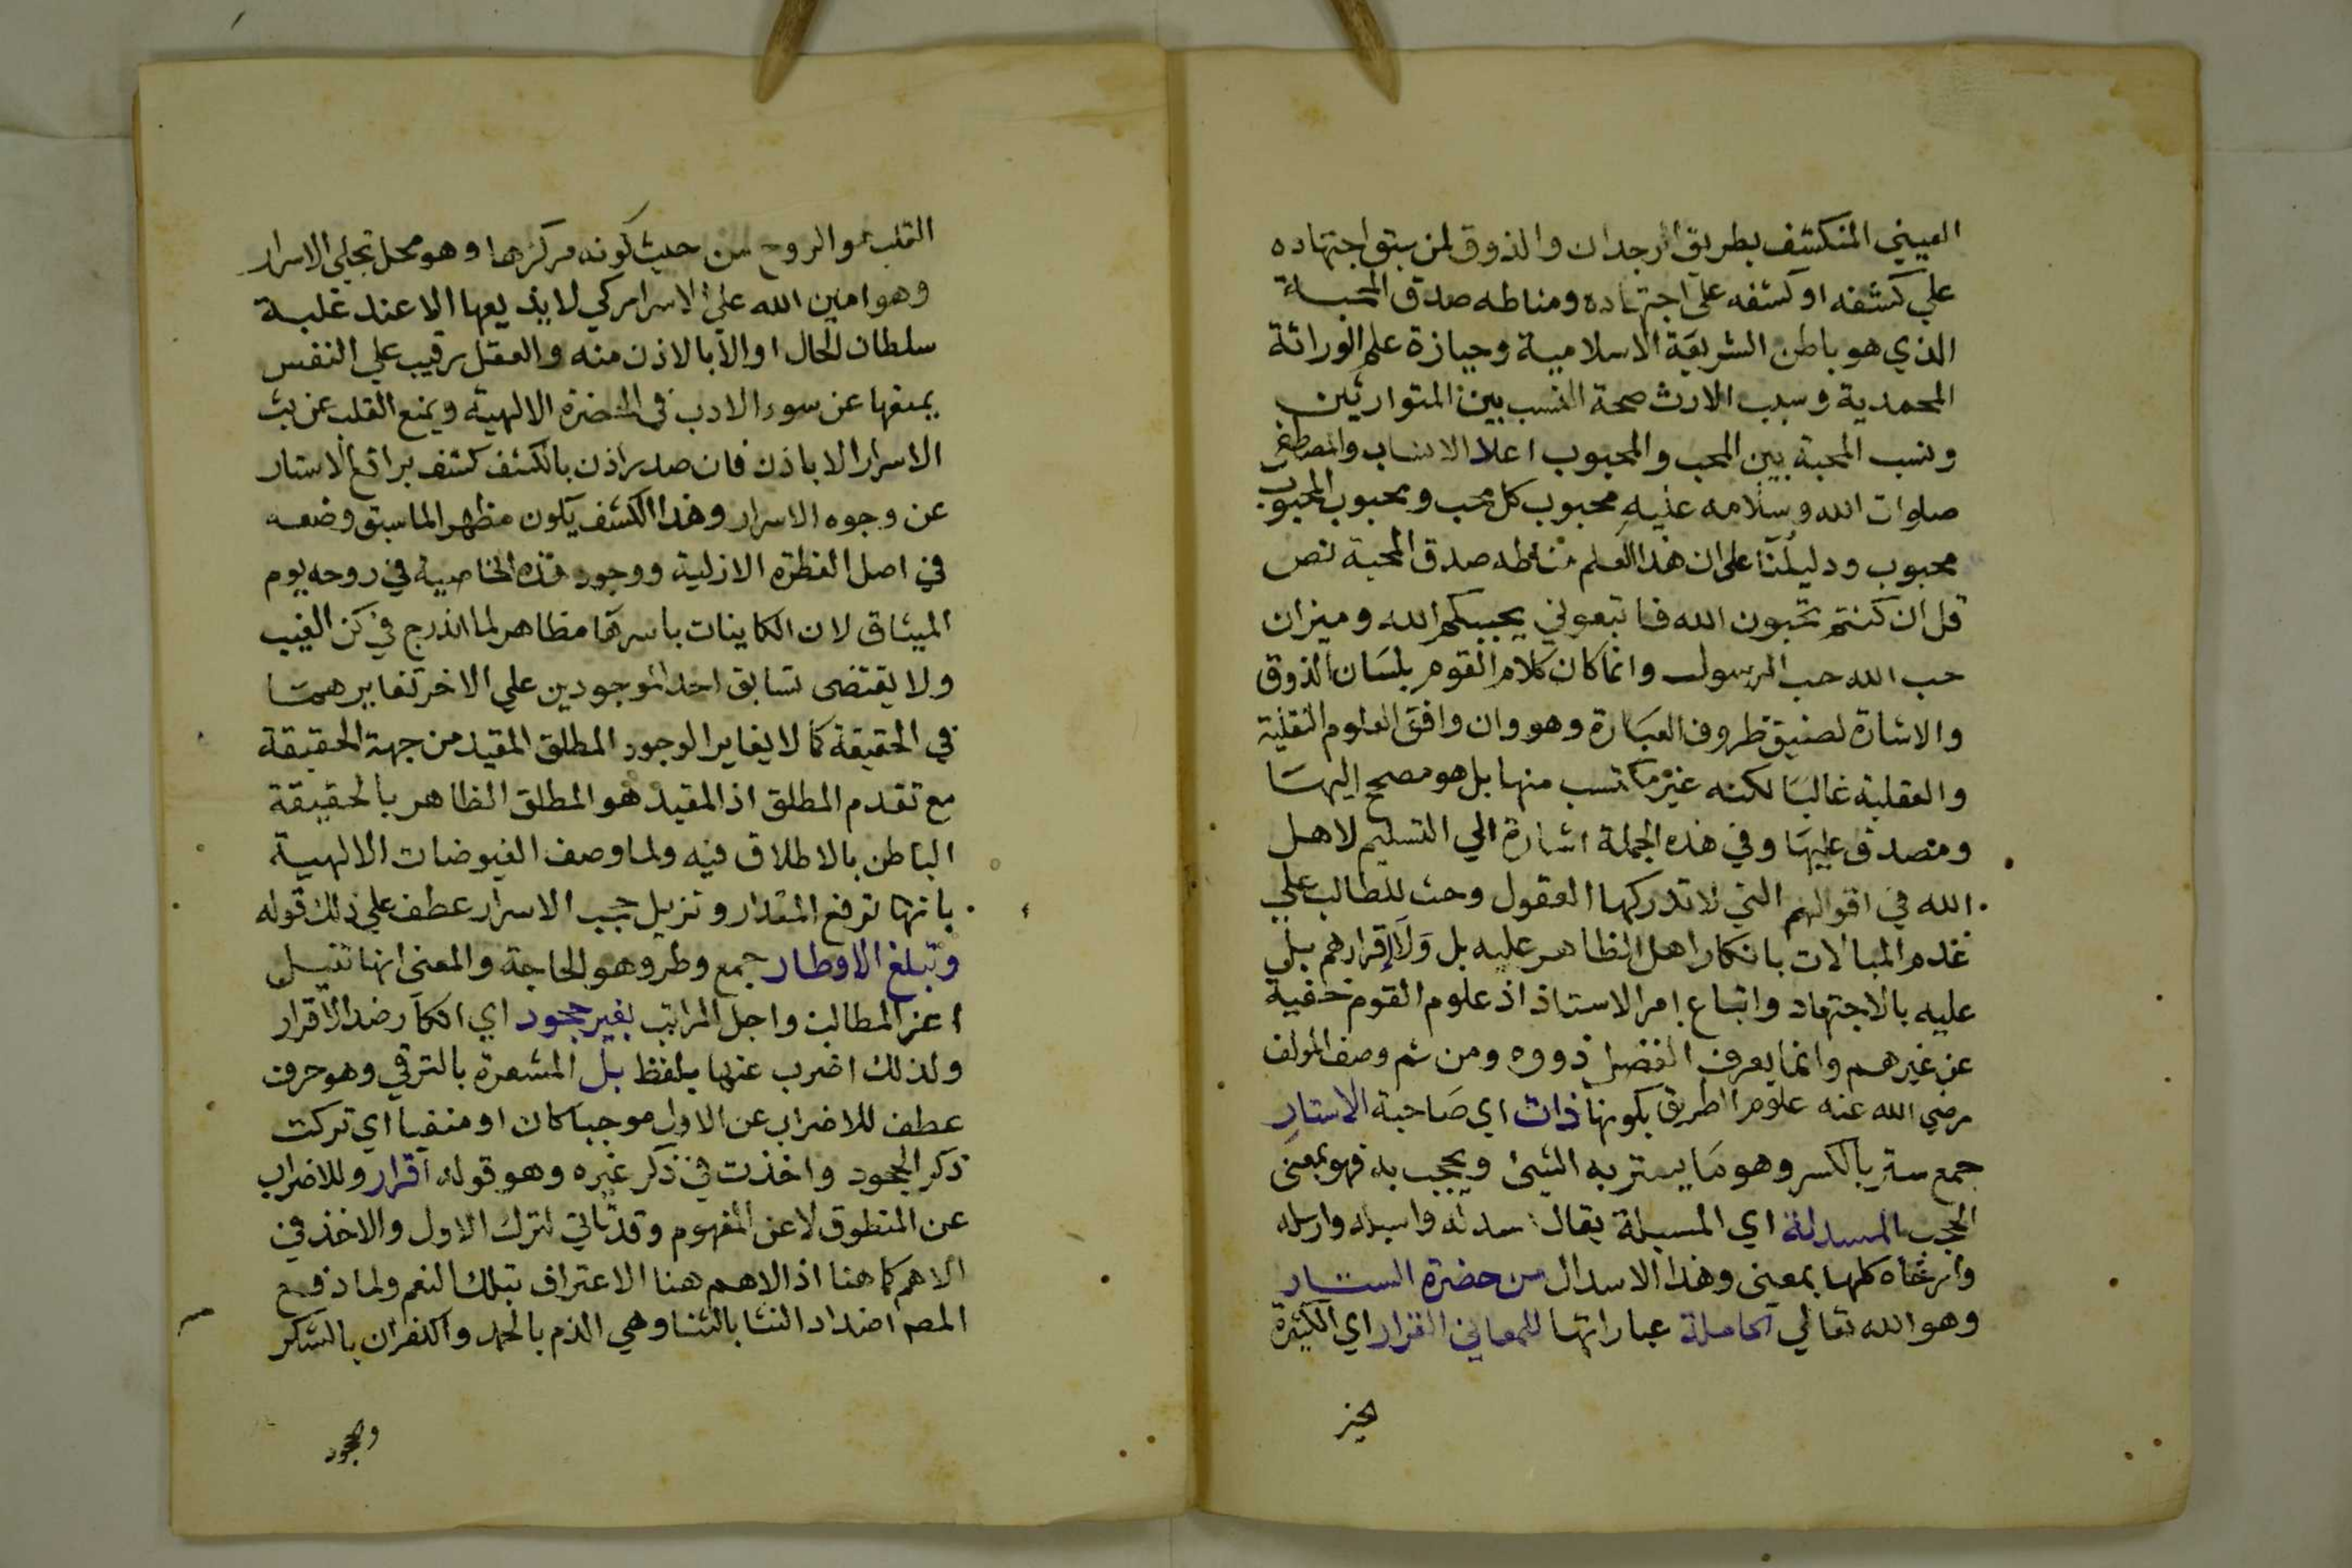 العيني المنكشف بطريق الوجدان والذوق لمن سبق اجتهاده
علي كشفه او كشفه على اجتهاده ومناطه صدق المحبة
الذي هو باطن الشريعة الاسلامية وحيازة علم الوراثة
المحمدية وسبب الارث صحة النسب بين المتوارثين
ونسب المحبة بين المحب والمحبوب اعلا الانساب والمصطفى
صلوات الله وسلامه عليه محبوب كل محب ومحبوب المحبوب
محبوب ودليلنا على ان هذا العلم مناطه صدق المحبة نص
قل ان كنتم تحبون الله فاتبعوني يحببكم الله وميزان
حب الله حب الرسول وانما كان كلام القوم بلسان الذوق
والاشارة لضيق ظروف العبارة وهو وان وافق العلوم النقلية
والعقلية غالبا لكنه غير مكتسب منها بل هو مصحح اليها
ومصدق عليها وفي هذه الجملة اشارة الي التسليم لاهل
الله في اقوالهم التي لا تدركها العقول وحث للطالب علي
عدم المبالات بانكار اهل الظاهر عليه بل ولا إقرارهم بلي
عليه بالاجتهاد واتباع امر الاستاذ اذ علوم القوم خفية
عن غيرهم وانما يعرف الفضل ذووه ومن ثم وصف المولف
رضي الله عنه علوم الطريق بكونها ذات اي صاحبة الاستار
جمع ستر بالكسر وهو ما يستر به الشيئ ويحجب به فهو بمعنى
الحجب المسدلة اي المسبلة يقال سدله واسبله وارسله
وأرخاه كلها بمعنى وهذا الاسدال من حضرة الستار
وهو الله تعالي الحاملة عباراتها للمعاني الغزار اي الكثيرة
القلب هو الروح من حيث كونه مركزها وهو محل تجلي الاسرار
وهو امين الله علي الاسرار كي لا يذيعها الا عند غلبة
سلطان الحال او الا بالاذن منه والعقل رقيب علي النفس
يمنعها عن سوء الادب في الحضرة الالهية ويمنع القلب عن بث
الاسرار الا باذن فان صدر اذن بالكشف كشف براقع الاستار
عن وجوه الاسرار وهذا الكشف يكون مظهرا لما سبق وضعه
في اصل الفطرة الازلية ووجود هذه الخاصية في روحه يوم
الميثاق لان الكاينات باسرها مظاهر لما اندرج في كن الغيب
ولا يقتضى تسابق احد الموجودين علي الاخر تغايرهما
في الحقيقة كما لا يغاير الوجود المطلق المقيد من جهة الحقيقة
مع تقدم المطلق اذ المقيد هو المطلق الظاهر بالحقيقة
الباطن بالاطلاق فيه ولما وصف الفيوضات الالهية
بانها ترفع المقدار وتزيل حجب الاسرار عطف علي ذلك قوله
وتبلغ الاوطار جمع وطر وهو الحاجة والمعنى انها تنيل
اعز المطالب واجل المراتب بغير جحود اي انكار ضد الاقرار
ولذلك اضرب عنها بلفظ بل المشعرة بالترقي وهو حرف
عطف للاضراب عن الاول موجبا كان او منفيا اي تركت
ذكر الجحود واخذت في ذكر غيره وهو قوله اقرار وللاضراب
عن المنطوق لا عن المفهوم وقد ياتي لترك الاول والاخذ في
الاهم كما هنا اذ الاهم هنا الاعتراف بتلك النعم ولما دفع
المصم اضداد الثنا بالثنا وهي الذم بالحمد والكفران بالشكر
والجحود